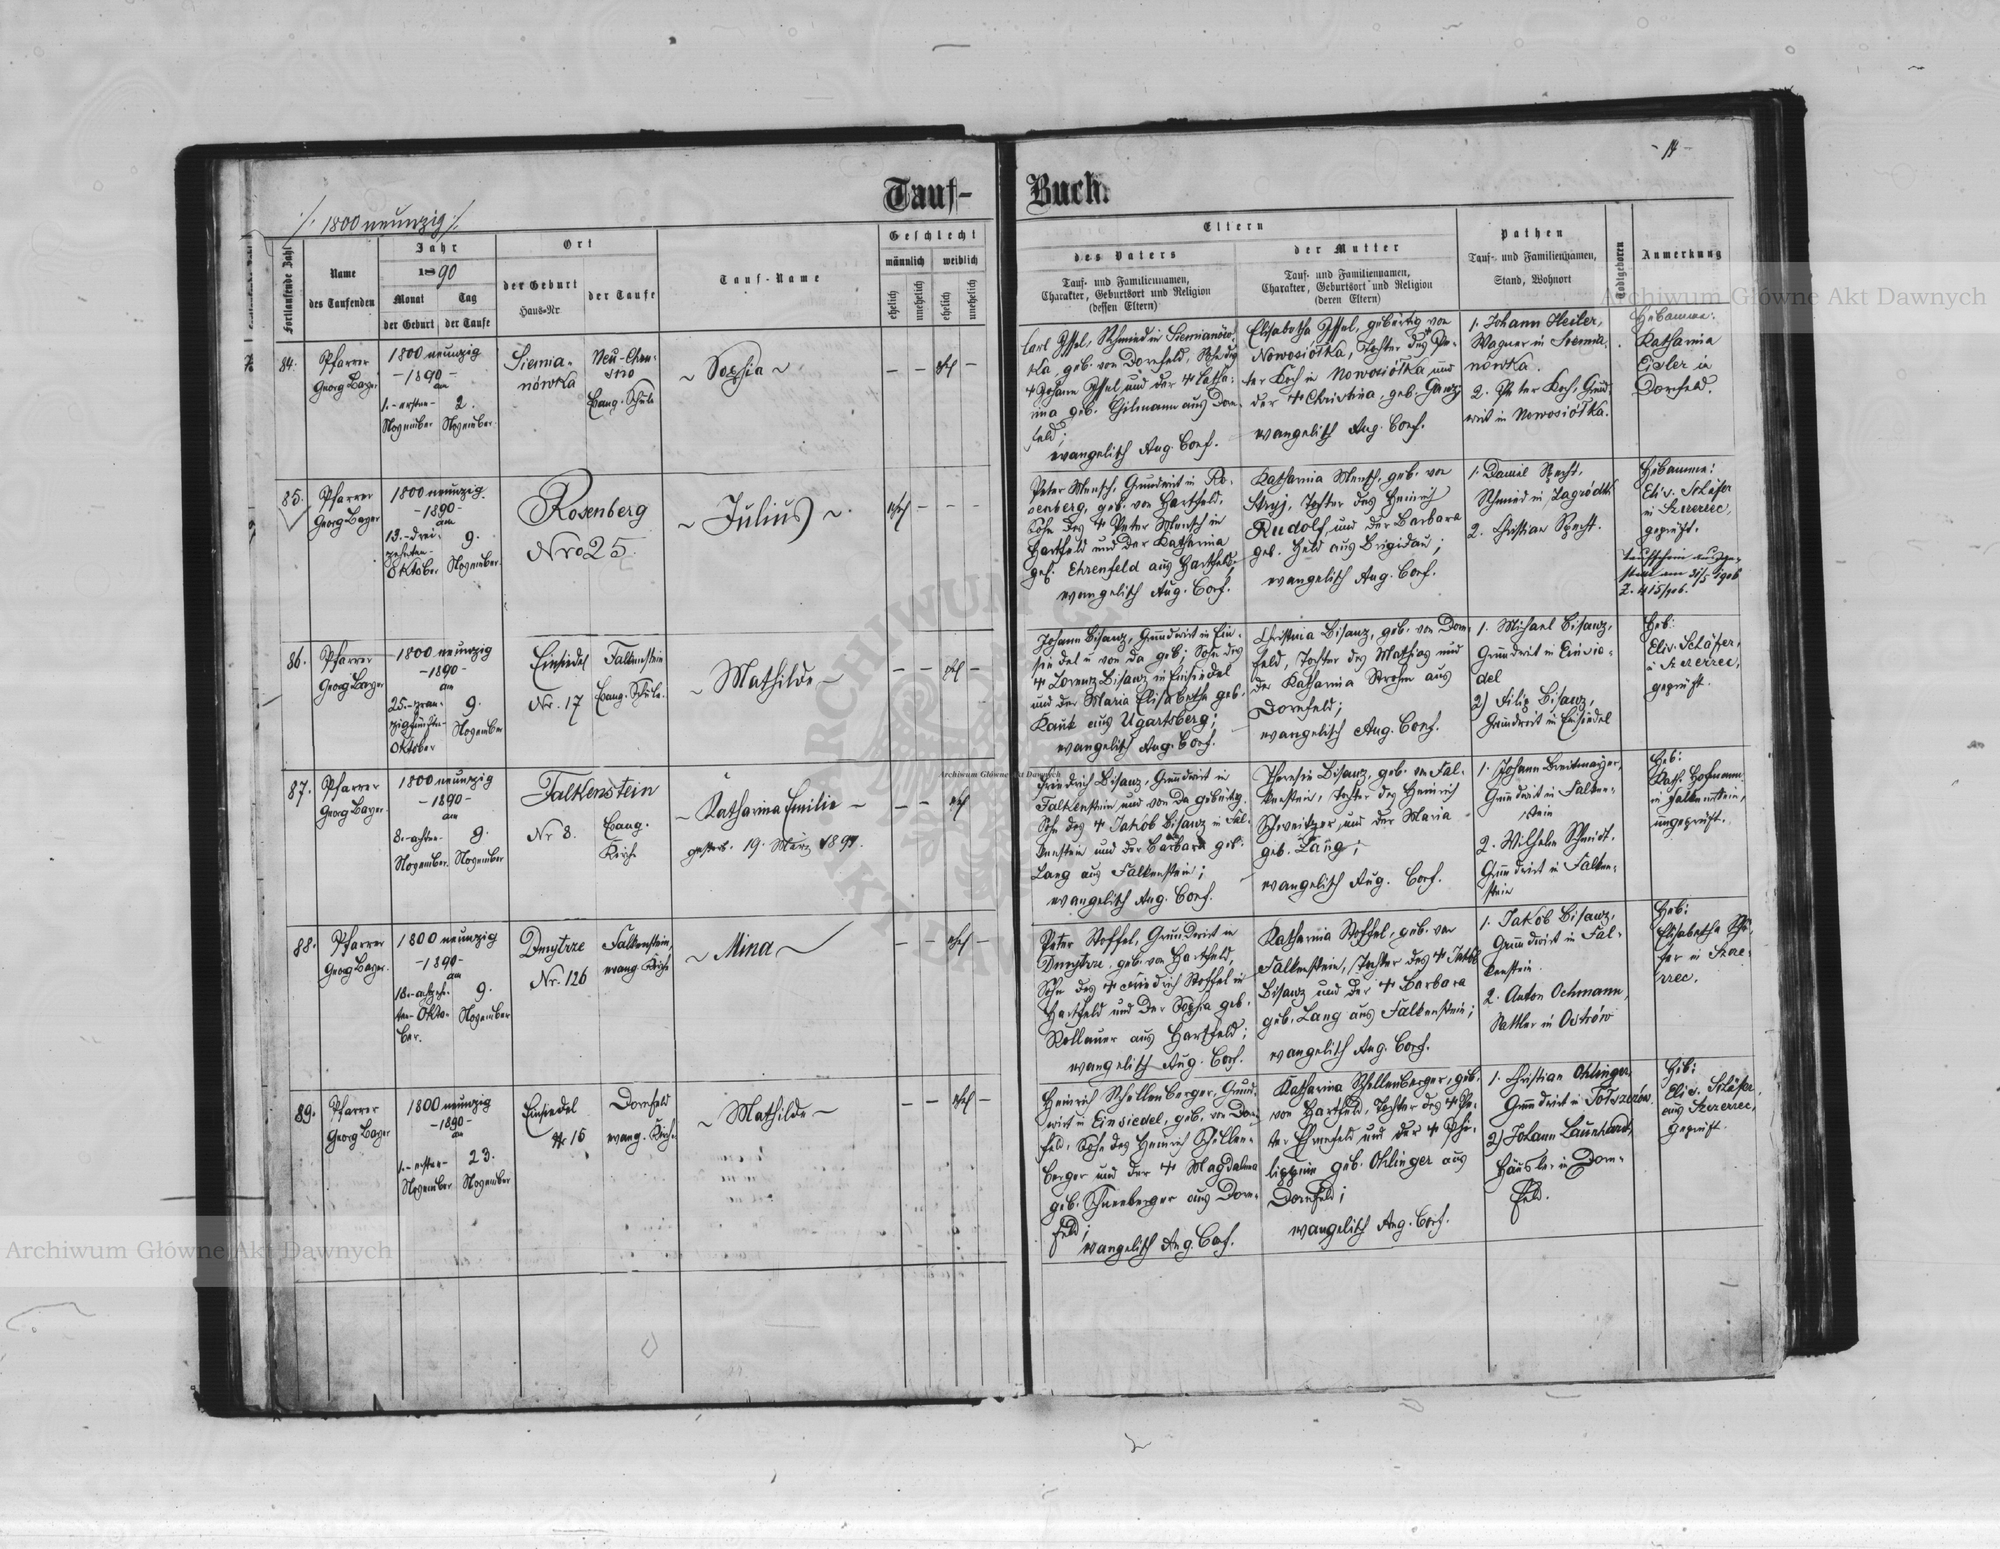 - 14 -
Tauf-
Buch.
/. 1800 neunzig /.
Fortlaufende Zahl
Name
des Taufenden
Jahr
1890
Monat
der Geburt
Tag
der Taufe
Ort
der Geburt
Haus-Nr
der Taufe
Tauf-Name
Geschlecht
männlich
weiblich
ehelich
unehelich
ehelich
unehelich
Eltern
des Vaters
Tauf- und Familiennamen,
Charakter, Geburtsort und Religion
(dessen Eltern)
der Mutter
Tauf- und Familiennamen,
Charakter, Geburtsort und Religion
(deren Eltern)
Pathen
Tauf- und Familiennamen,
Stand, Wohnort
Todtgeboren
Anmerkung
84.
Pfarrer
Georg Bayer
1800 neunzig
- 1890 -
am
1. - ersten -
November
2.
November
Siemia-
nówka
Neu-Chru-
sno
Evang. Schule
~ Sophia ~
- - ehel -
Carl , Schmied in Siemianów-
ka, geb. von Dornfeld, Sohn des
† Johann und der † Catha-
rina geb. aus Dorn-
feld;
evangelisch Aug. Conf.
Elisabetha , gebürtig von
Nowosiółka, Tochter des Pe-
ter Koch in Nowosiółka und
der † Christina, geb. Ganz;
evangelisch Aug. Conf.
1. Johann Heiler,
Wagner in Siemia-
nówka.
2. Peter Koch, Grund-
wirt in Nowosiółka.
Hebamme:
Katharina
in
Dornfeld.
85.
Pfarrer
Georg Bayer
1800 neunzig
- 1890 -
am
13. - drei-
zehnten -
Oktober
9.
November
Rosenberg
Nro 25.
~ Julius ~
ehel - - -
Peter Mensch, Grundwirt in Ro-
senberg, geb. von Hartfeld,
Sohn des † Peter Mensch in
Hartfeld und der Katharina
geb. Ehrenfeld aus Hartfeld;
evangelisch Aug. Conf.
Katharina Mensch, geb. von
Stryj, Tochter des Heinrich
Rudolf, und der Barbara
geb. Held aus Brigidau;
evangelisch Aug. Conf.
1. Daniel Specht,
Schmied in Zagródki
2. Christian Specht.
Hebamme:
Elis. Schäfer
in Szczerzec,
geprüft.
Taufschein ausge-
stellt am 31/5 1906
Z. 415/906.
86.
Pfarrer
Georg Bayer
1800 neunzig
- 1890 -
am
25. - zwan-
zigfünften -
Oktober
9.
November
Einsiedel
Nr. 17
Falkenstein
Evang. Schule.
~ Mathilde ~
- - ehel -
Johann Bisanz, Grundwirt in Ein-
siedel u von da geb; Sohn des
† Lorenz Bisanz in Einsiedel
und der Maria Elisabetha geb.
Kauk aus Ugartsberg;
evangelisch Aug. Conf.
Christina Bisanz, geb. von Dorn-
feld, Tochter des Mathias und
der Katharina Strohm aus
Dornfeld;
evangelisch Aug. Conf.
1. Michael Bisanz,
Grundwirt in Einsie-
del
2) Filip Bisanz,
Grundwirt in Einsiedel
Heb:
Elis. Schäfer,
in Szczerzec,
geprüft.
87.
Pfarrer
Georg Bayer
1800 neunzig
- 1890 -
am
8. - achten -
November
9.
November
Falkenstein
Nr 8.
Evang.
Kirche
~ Katharina Emilie ~
gestorb. 19. März 1897.
- - ehel
Friedrich Bisanz, Grundwirt in
Falkenstein und von da gebürtig,
Sohn des † Jakob Bisanz in Fal-
kenstein und der Barbara geb.
Lang aus Falkenstein;
evangelisch Aug. Conf.
Theresia Bisanz, geb. von Fal-
kenstein, Tochter des Heinrich
Schweitzer, und der Maria
geb. Lang;
evangelisch Aug. Conf.
1. Johann Breitmayer,
Grundwirt in Falken-
stein
2. Wilhelm Schmidt,
Grundwirt in Falken-
stein
Heb:
Kath. Hofmann
in Falkenstein,
ungeprüft.
88.
Pfarrer
Georg Bayer
1800 neunzig
- 1890 -
am
18. - achtzehn-
ten - Okto-
ber.
9.
November
Dmytrze
Nr. 126
Falkenstein,
evang. Kirche
~ Mina ~
- - ehel -
Peter Stoffel, Grundwirt in
Dmytrze, geb. von Hartfeld,
Sohn des † Friedrich Stoffel in
Hartfeld und der Sophia geb.
Rollauer aus Hartfeld;
evangelisch Aug. Conf.
Katharina Stoffel, geb. von
Falkenstein, Tochter des † Jakob
Bisanz und der † Barbara
geb. Lang aus Falkenstein;
evangelisch Aug. Conf.
1. Jakob Bisanz,
Grundwirt in Fal-
kenstein.
2. Anton Ochmann,
Sattler in Ostrów
Heb:
Elisabetha Schä-
fer in Szcze-
rzec.
89.
Pfarrer
Georg Bayer
1800 neunzig
- 1890 -
am
1. - ersten -
November
23.
November
Einsiedel
# 15
Dornfeld
evang. Kirche
~ Mathilde ~
- - ehel -
Heinrich Schellenberger, Grund-
wirt in Einsiedel, geb. von Dorn-
feld, Sohn des Heinrich Schellen-
berger und der † Magdalena
geb. Schneeberger aus Dorn-
feld;
evangelisch Aug. Conf.
Katharina Schellenberger, geb.
von Hartfeld, Tochter des † Pe-
ter Ehrenfeld und der † Phi-
lippine geb. Ohlinger aus
Dornfeld;
evangelisch Aug. Conf.
1. Christian Ohlinger,
Grundwirt in Tołszczów
2) Johann Launhardt,
Häusler in Dorn-
feld.
Heb:
Elis. Schäfer,
aus Szczerzec,
geprüft.
Archiwum Główne Akt Dawnych
Archiwum Główne Akt Dawnych
Archiwum Główne Akt Dawnych